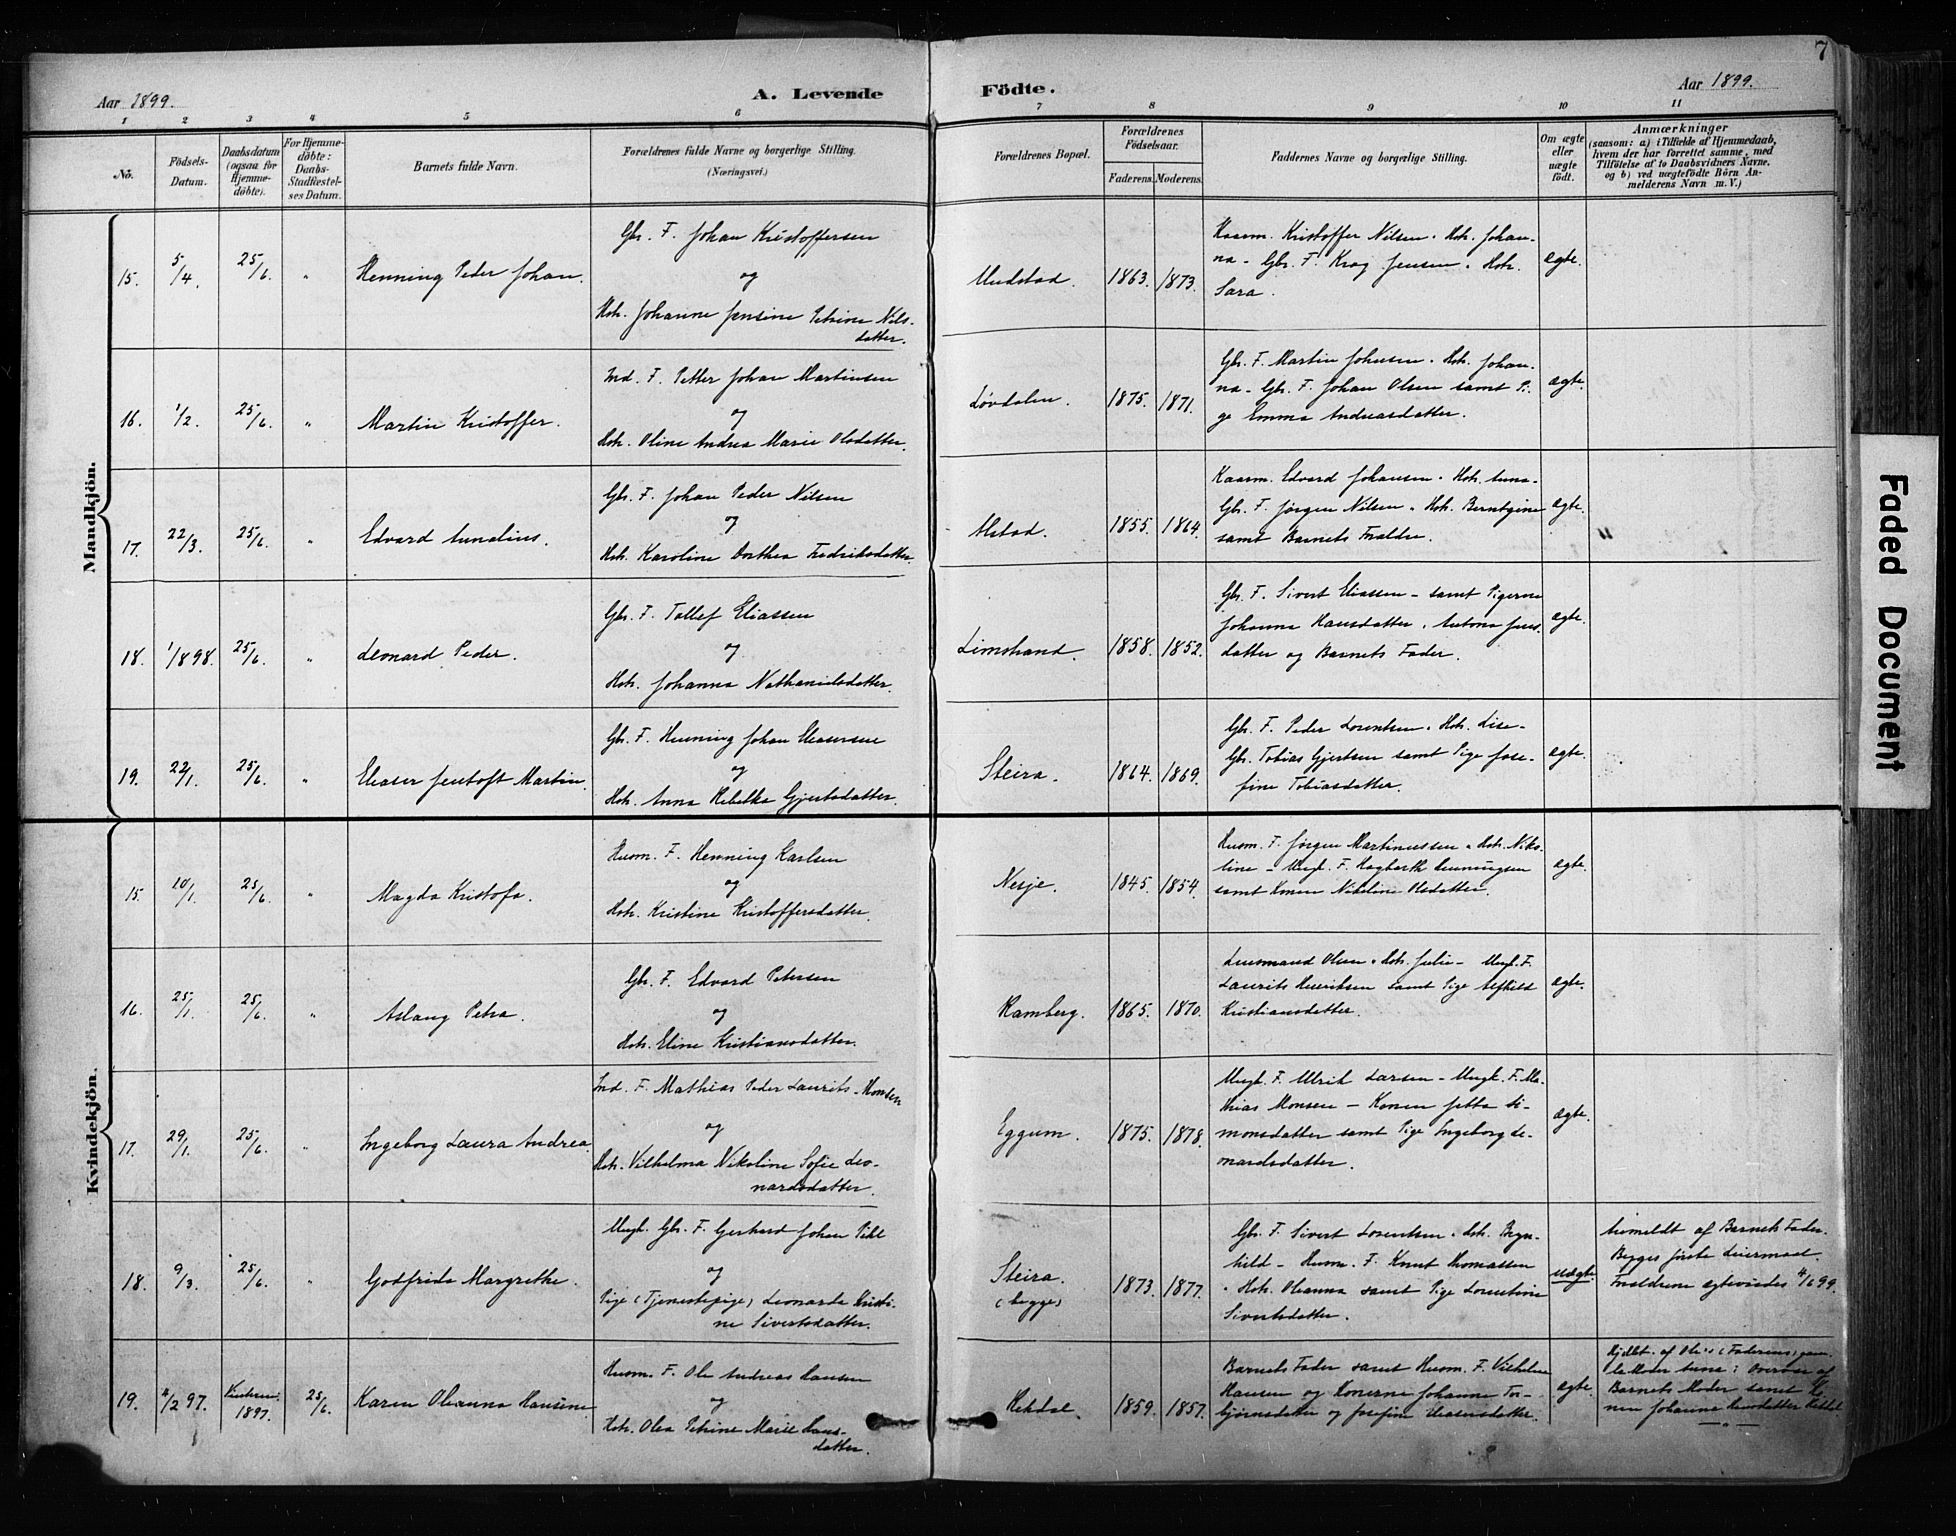 7
Aar 1899.
A. Levende Födte.
Aar 1899.
1 2 3 4 5 6 7 8 9 10 11
No.
Födsels-
Datum.
Daabsdatum
(ogsaa for
Hjemme-
döbte).
For Hjemme-
döbte:
Daabs-
Stadfæstel-
ses Datum.
Barnets fulde Navn.
Forældrenes fulde Navne og borgerlige Stilling.
(Næringsvei.)
Forældrenes Bopæl.
Forældrenes
Födselsaar.
Faderens. Moderens.
Faddernes Navne og borgerlige Stilling.
Om ægte
eller
uægte
födt.
Anmærkninger
(saasom: a) i Tilfælde af Hjemmedaab,
hvem der har forrettet samme, med
Tilföielse af to Daabsvidners Navne.
og b) ved uægtefödte Börn An-
melderens Navn m. V.)
Mandkjön.
15. 5/4. 25/6. " Henning Peder Johan.
Gbr. F. Johan Kristoffersen
og
Hstr. Johanne Jensine Petrine Nils-
datter.
1863. 1873.
Kaarm. Kristoffer Nilsen. Hstr. Johan-
na - Gbr. F. Krog Jensen. Hstr.
Sara.
ægte.
16. 1/2. 25/6. " Martin Kristoffer.
Ind. F. Petter Johan Martinsen
og
Hstr. Oline Andrea Marie Olsdatter.
Løvdalen. 1875. 1871.
Gbr. F. Martin Johnsen. Hstr. Johan-
na - Gbr. F. Johan Olsen samt Pi-
ge Emma Andreasdatter.
ægte.
17. 22/3. 25/6. " Edvard Annelius.
Gbr. F. Johan Peder Nilsen
og
Hstr. Karoline Dorthea Fredriksdatter.
Alstad. 1855. 1864.
Kaarm. Edvard Johansen. Hstr. Anna-
Gbr. F. Jørgen Nilsen. Hstr. Berntgine
samt Barnets Forældre.
ægte.
18. 1/8 98. 25/6. " Leonard Peder.
Gbr. F. Tollef Eliassen
og
Hstr. Johanna Nathanielsdatter.
Limstrand. 1858. 1852.
Gbr. F. Sivert Eliassen - samt Pigerne
Johanna Hansdatter. Antona Jens-
datter og Barnets Fader.
ægte.
19. 22/1. 25/6. " Eleaser Jentoft Martin.
Gbr. F. Henning Johan Eleasersen
og
Hstr. Anna Rebekka Gjertsdatter.
Steira. 1864. 1869.
Gbr. F. Peder Lorentsen. Hstr. Lise-
Gbr. Tobias Gjertsen samt Pige Jose-
fine Tobiasdatter.
ægte.
Kvindekjön.
15. 10/1. 25/6. " Magda Kristofa.
Husm. F. Henning Karlsen
og
Hstr. Kristine Kristoffersdatter.
Nesje. 1845. 1854.
Husm. F. Jørgen Martinussen. Hstr. Niko-
line - Ungk. F. Hagbarth Henningsen
samt Konen Nikoline Olsdatter.
ægte.
16. 25/1. 25/6. " Aslaug Petra.
Gbr. F. Edvard Petersen
og
Hstr. Eline Kristiansdatter.
Ramberg. 1865. 1870.
Lensmand Olsen. Hstr. Julie - Ungk. F.
Laurits Henriksen samt Pige Alfhild
Kristiansdatter.
ægte.
17. 29/1. 25/6. " Ingeborg Laura Andrea.
Ind. F. Mathias Peder Laurits Monsen
og
Hstr. Vilhelma Nikoline Sofie Leo-
nardsdatter.
Eggum. 1875. 1878.
Ungk. F. Ulrik Larsen - Ungk. F. Ma-
thias Monsen - Konen Jetta Si-
monsdatter samt Pige Ingeborg Le-
onardsdatter.
ægte.
18. 9/3. 25/6. " Godfrida Margrethe.
Ungk. Gbr. F. Gerhard Johan Pihl
og
Pige (Tjenestepige) Leonarda Kristi-
ne Sivertsdatter.
Steira.
(begge)
1873. 1877.
Gbr. F. Sivert Lorentsen. Hstr. Bryn-
hild - Husm. F. Knut Thomassen
. Hstr. Oleanna samt Pige Lorentine
Sivertsdatter.
uægte.
Anmeldt af Barnets Fader.
Begges første Leiermaal.
Forældrene ægteviedes 4/6 99.
19. 4/2 97. 1897. 25/6. Karen Oleanna Hansine.
Husm. F. Ole Andreas Hansen
og
Hstr. Olea Petrine Marie Hans-
datter.
Hekdal. 1859. 1857.
Barnets Fader samt Husm. F. Vilhelm
Hansen og Konerne Johanna Tor-
bjørnsdatter og Josefine Eleasersdatter.
ægte.
Barnets Moder samt Ko-
nen Johanna
Faded Document